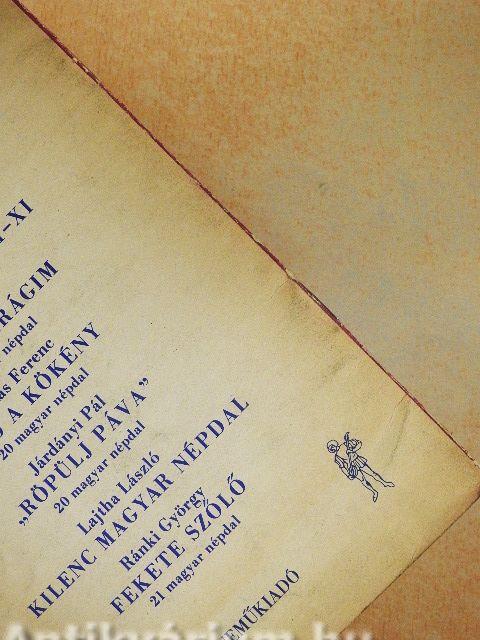 -XI
RÁGIM
népdal
as Ferenc
A KÖKÉNY
20 magyar népdal
Járdányi Pál
„RÖPÜLJ PÁVA”
20 magyar népdal
Lajtha László
KILENC MAGYAR NÉPDAL
Ránki György
FEKETE SZŐLŐ
21 magyar népdal
EMŰKIADÓ
Antikvárium.hu